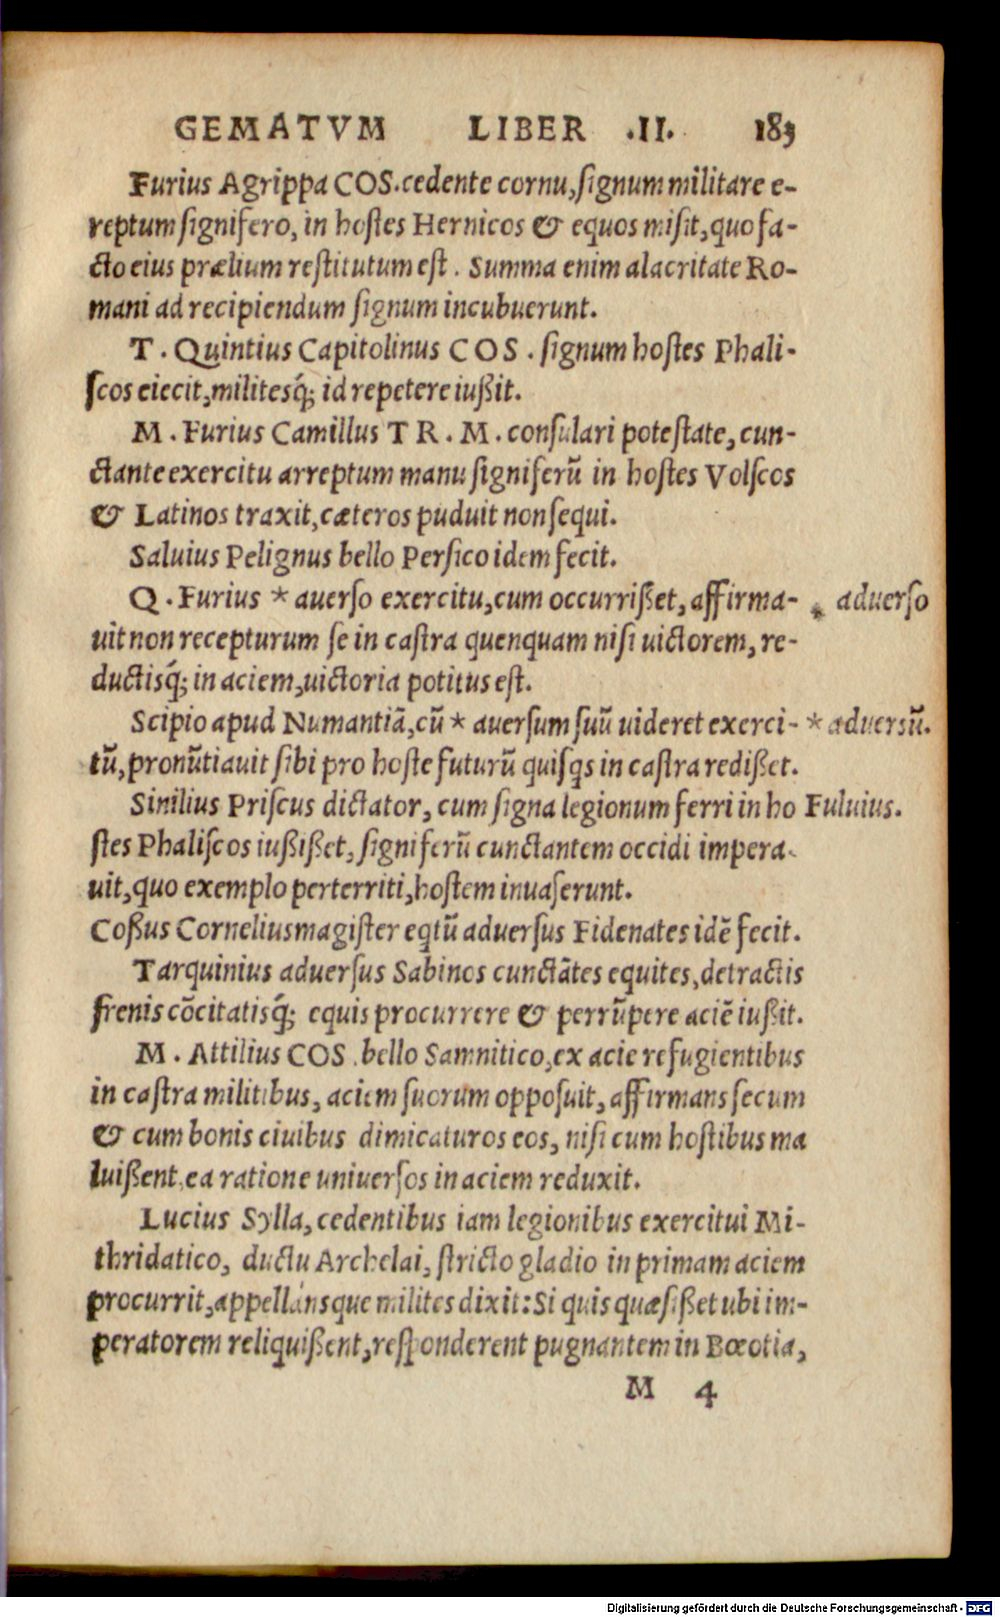 GEMATVM LIBER .II. 183
Furius Agrippa COS. cedente cornu, ſignum militare e-
reptum ſignifero, in hoſtes Hernicos & equos miſit, quo fa-
cto eius prælium reſtitutum eſt. Summa enim alacritate Ro-
mani ad recipiendum ſignum incubuerunt.
T. Quintius Capitolinus COS. ſignum hoſtes Phali-
ſcos eiecit, militesq́; id repetere iußit.
M. Furius Camillus TR. M. conſulari poteſtate, cun-
ctante exercitu arreptum manu ſigniferū in hoſtes Volſcos
& Latinos traxit, cæteros puduit non ſequi.
Saluius Pelignus bello Perſico idem fecit.
Q. Furius * auerſo exercitu, cum occurrißet, affirma- * aduerſo
uit non recepturum ſe in caſtra quenquam niſi uictorem, re-
ductisq́; in aciem, uictoria potitus eſt.
Scipio apud Numantiā, cū * auerſum ſuū uideret exerci- * aduersū.
tū, pronūtiauit ſibi pro hoſte futurū quiſq̃s in caſtra redißet.
Sinilius Priſcus dictator, cum ſigna legionum ferri in ho Fuluius.
ſtes Phaliſcos iußißet, ſigniferū cunctantem occidi impera-
uit, quo exemplo perterriti, hoſtem inuaſerunt.
Coßus Cornelius magiſter eq̃tū aduerſus Fidenates idē fecit.
Tarquinius aduerſus Sabinos cunctātes equites, detractis
frenis cōcitatisq́; equis procurrere & perrūpere aciē iußit.
M. Attilius COS. bello Samnitico, ex acie refugientibus
in caſtra militibus, aciem ſuorum oppoſuit, affirmans ſecum
& cum bonis ciuibus dimicaturos eos, niſi cum hoſtibus ma
luißent, ea ratione uniuerſos in aciem reduxit.
Lucius Sylla, cedentibus iam legionibus exercitui Mi-
thridatico, ductu Archelai, ſtricto gladio in primam aciem
procurrit, appellansque milites dixit: Si quis quæſißet ubi im-
peratorem reliquißent, reſponderent pugnantem in Bœotia,
M 4
Digitalisierung gefördert durch die Deutsche Forschungsgemeinschaft - DFG